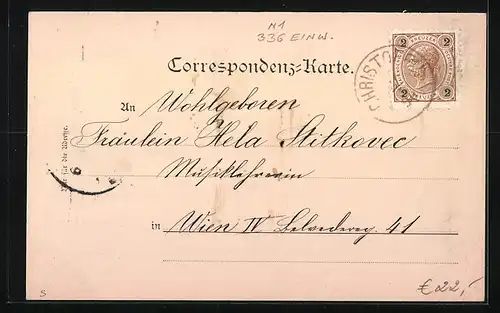 N1
336 EINW.
Correspondenz-Karte.
2 KREUZER 2
2 2
CHRISTO
An Wohlgeboren
Fräulein Hela Stitkovec
Musiklehrerin
in Wien IV Belvedereg. 41
Nur für die Adresse.
6
S
€ 22,-